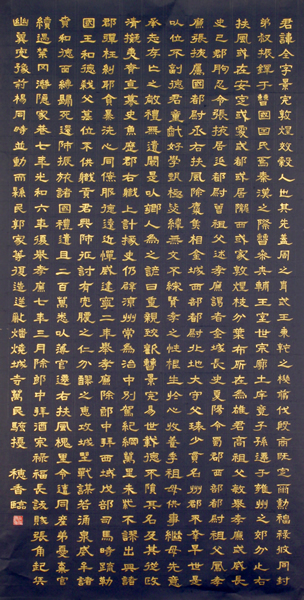 君諱全字景完敦煌效穀人也其先蓋周之胄武王秉乾之機翦伐殷商既定爾勳福祿攸同封
弟叔振鐸于曹國因氏焉秦漢之際曹參夾輔王室世宗廓土斥竟子孫遷于雍州之郊分止右
扶風或在安定或處武都或居隴西或家敦煌枝分葉布所在為雄君高祖父敏舉孝廉武威長
史巴郡朐忍令張掖居延都尉曾祖父述孝廉謁者金城長史夏陽令蜀郡西部都尉祖父鳳孝
廉張掖屬國都尉丞右扶風隃麋侯相金城西部都尉北地大守父琫少貫名州郡不幸早世是
以位不副德君童齔好學甄極毖緯無文不綜賢孝之性根生於心收養季祖母供事繼母先意
承志存亡之敬禮無遺闕是以鄉人為之諺曰重親致歡曹景完易世載德不隕其名及其從政
清擬夷齊直慕史魚歷郡右職上計掾史仍辟涼州常為治中別駕紀綱萬里朱紫不謬出典諸
郡彈枉糾邪貪暴洗心同僚服德遠近憚威建寧二年舉孝廉除郎中拜西域戊部司馬時疏勒
國王和德弒父篡位不供職貢君興師征討有吮膿之仁分醪之惠攻城野戰謀若涌泉威牟諸
賁和德面縛歸死還師振旅諸國禮遺且二百萬悉以薄官遷右扶風槐里令遭同產弟憂棄官
續遇禁罔潛隱家巷七年光和六年復舉孝廉七年三月除郎中拜酒泉祿福長訞賊張角起兵
幽冀兗豫荊楊同時並動而縣民郭家等復造逆亂燔燒城寺萬民騷擾 穗香臨